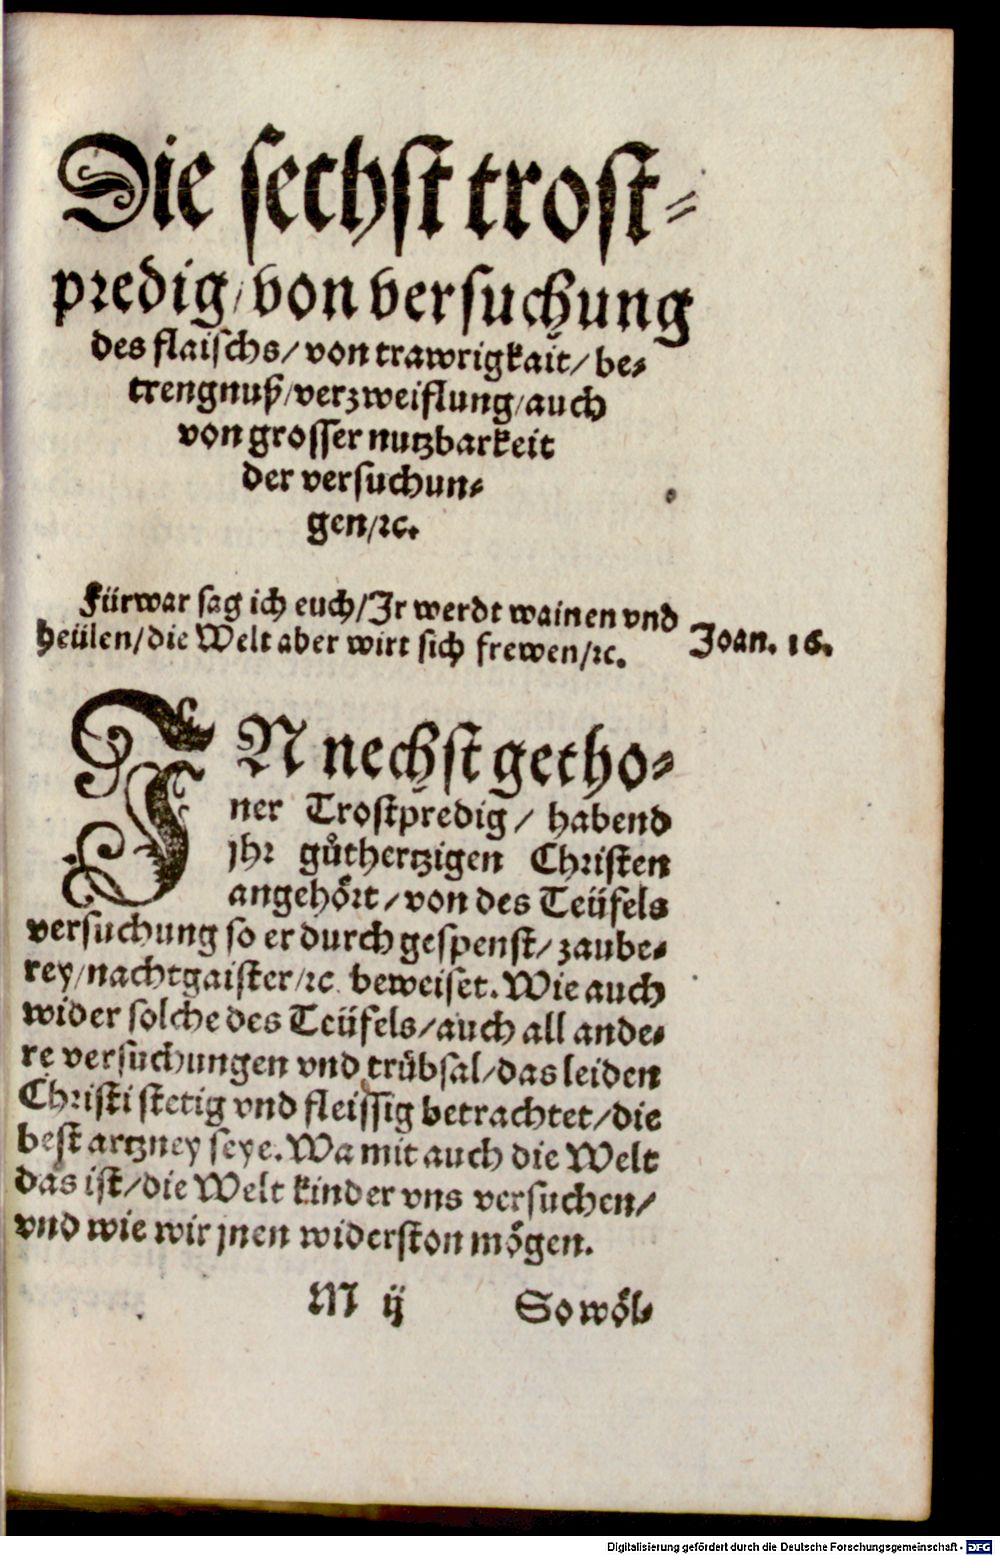 Die sechst trost-
predig/ von versuchung
des flaischs/ von trawrigkait/ be-
trengnuß/ verzweiflung/ auch
von grosser nutzbarkeit
der versuchun-
gen/ ꝛc.
Fürwar sag ich euch/ Jr werdt wainen vnd
heülen/ die Welt aber wirt sich frewen/ ꝛc.
Joan. 16.
IN nechst getho-
ner Trostpredig/ habend
jhr gůthertzigen Christen
angehört/ von des Teüfels
versuchung so er durch gespenst/ zaube-
rey/ nachtgaister/ ꝛc. beweiset. Wie auch
wider solche des Teüfels/ auch all ande-
re versuchungen vnd trübsal/ das leiden
Christi stetig vnd fleissig betrachtet/ die
best artzney seye. Wa mit auch die Welt
das ist/ die Welt kinder vns versuchen/
vnd wie wir jnen widerston mögen.
M ij
So wöl-
Digitalisierung gefördert durch die Deutsche Forschungsgemeinschaft - DFG